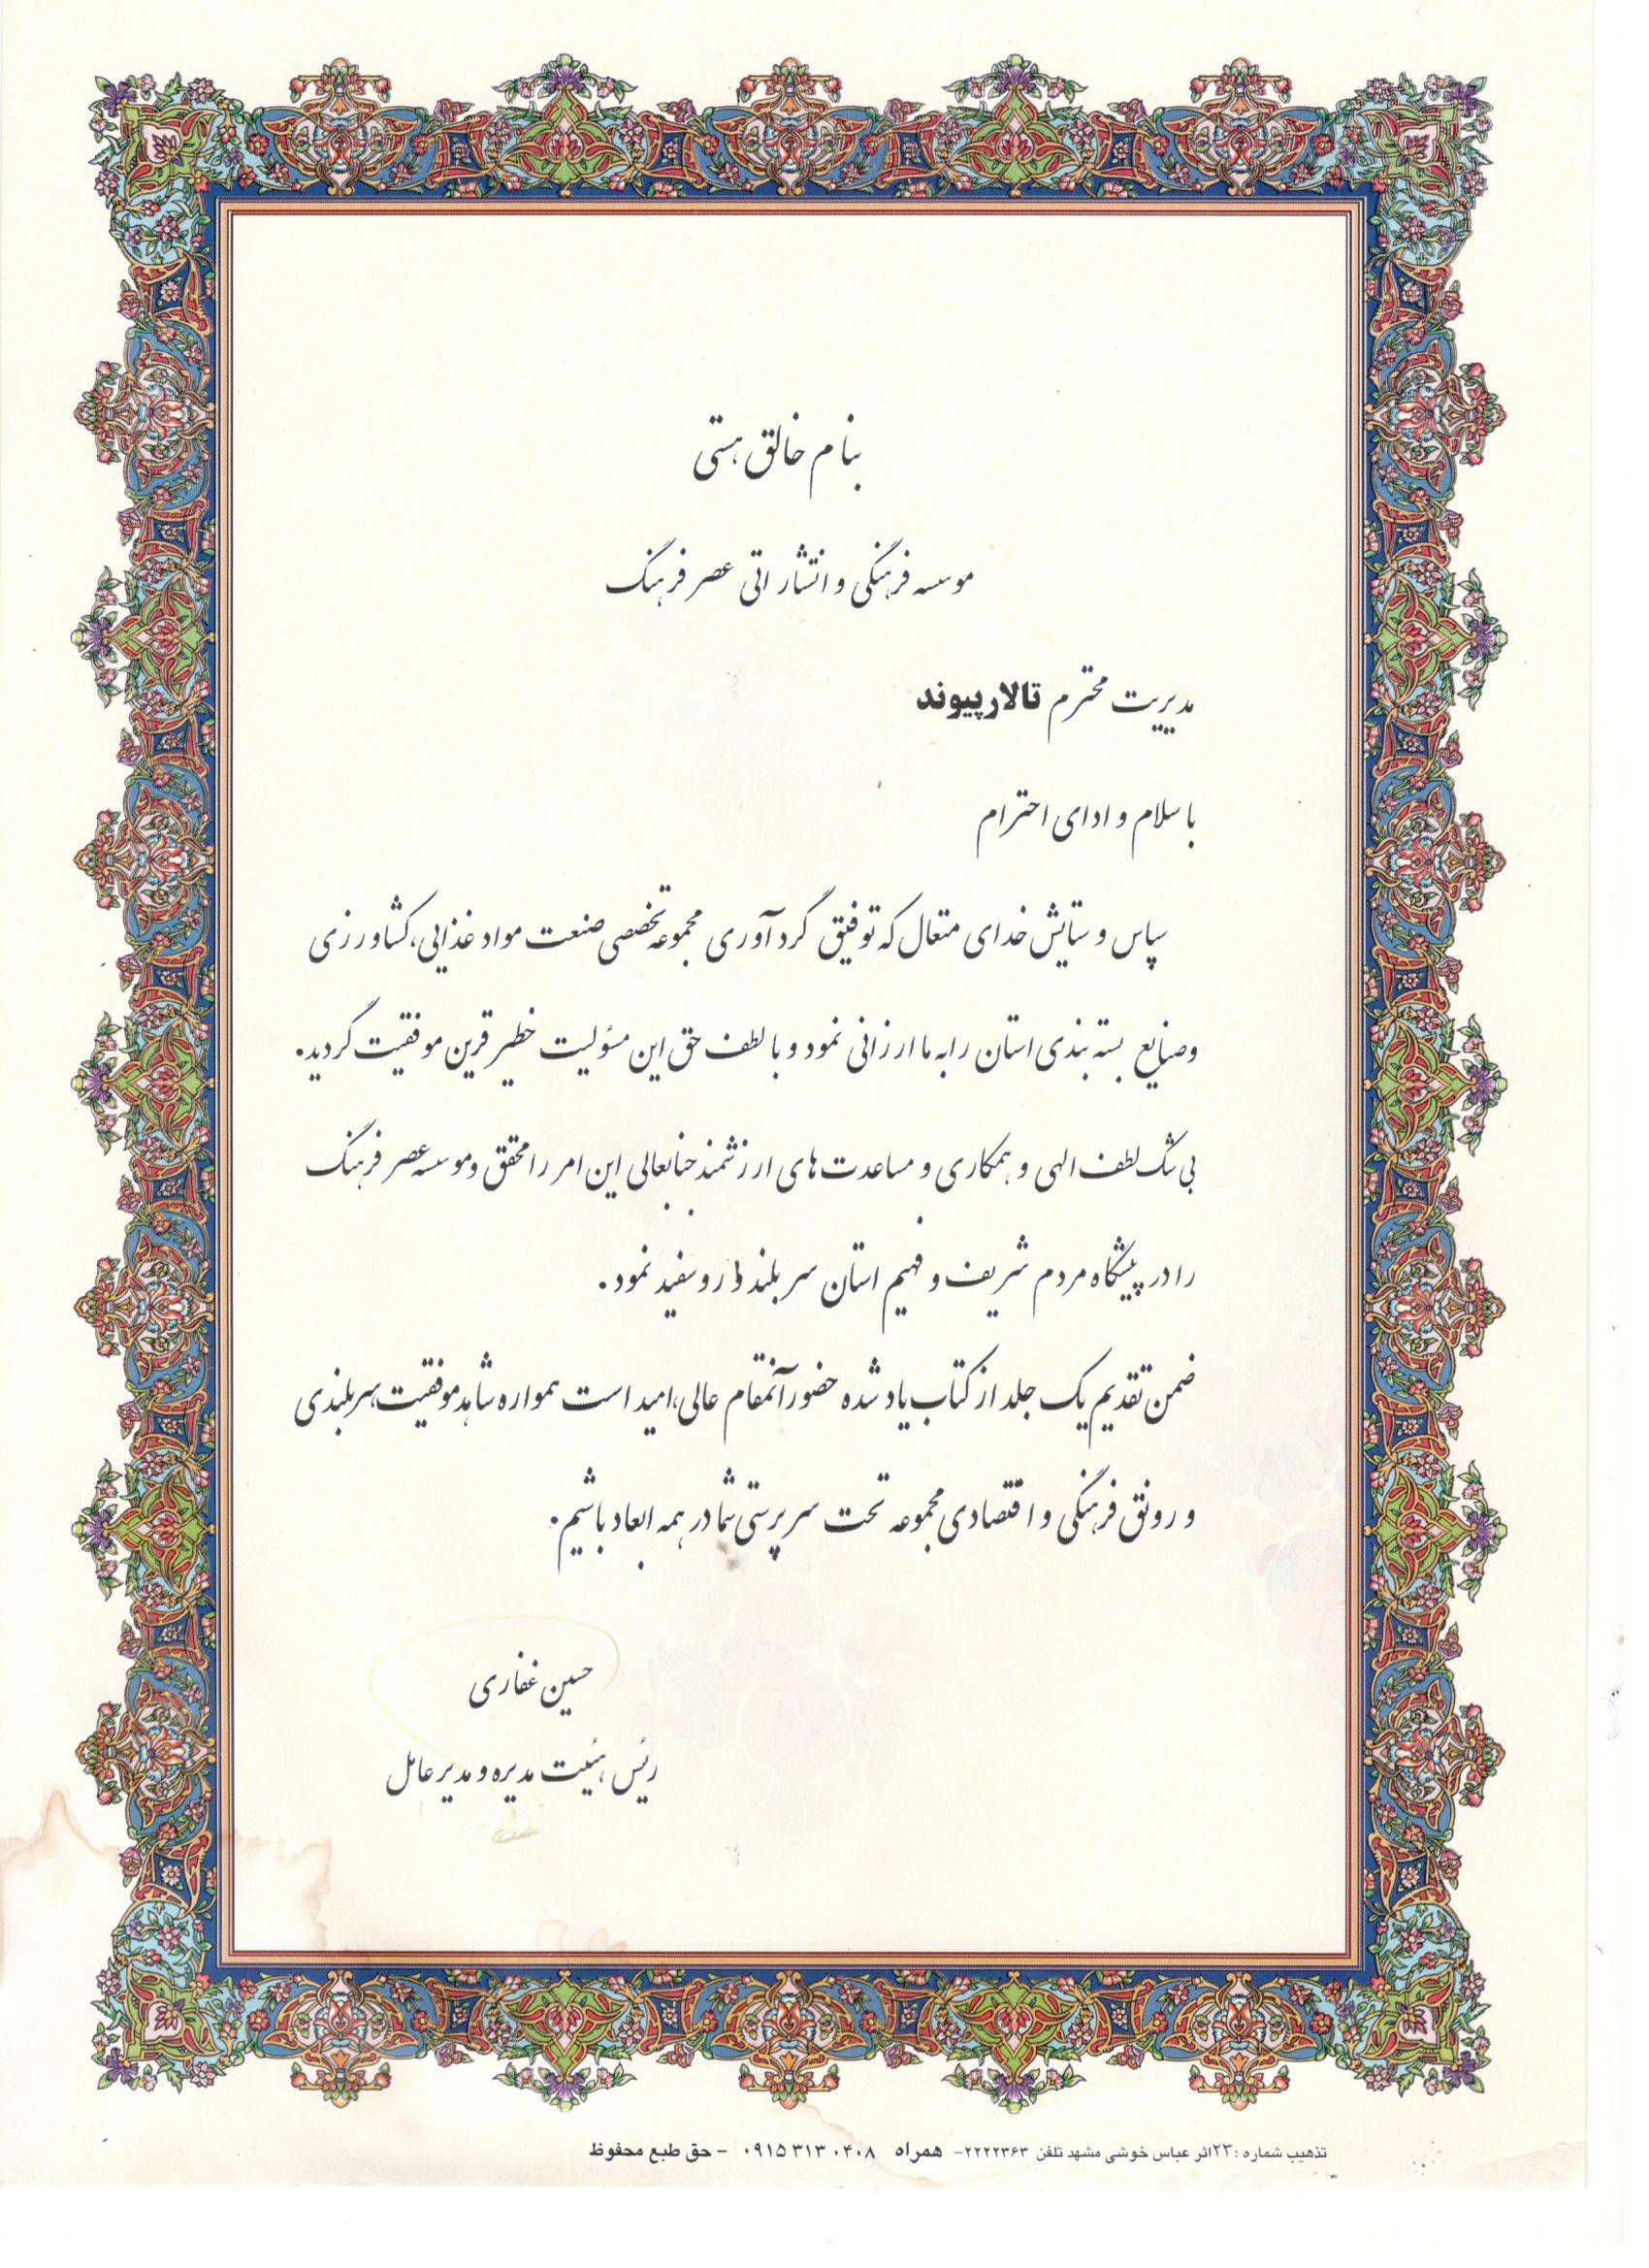 بنام خالق هستی
موسسه فرهنگی و انتشاراتی عصر فرهنگ
مدیریت محترم تالار پیوند
با سلام و ادای احترام
سپاس و ستایش خدای متعال که توفیق گردآوری مجموعه تخصصی صنعت مواد غذایی، کشاورزی
و صنایع بسته بندی استان را به ما ارزانی نمود و با لطف حق این مسؤلیت خطیر قرین موفقیت گردید.
بی شک لطف الهی و همکاری و مساعدت های ارزشمند جنابعالی این امر را محقق و موسسه عصر فرهنگ
را در پیشگاه مردم شریف و فهیم استان سربلند و رو سفید نمود.
ضمن تقدیم یک جلد از کتاب یاد شده حضور آنمقام عالی، امید است همواره شاهد موفقیت، سربلندی
و رونق فرهنگی و اقتصادی مجموعه تحت سرپرستی شما در همه ابعاد باشیم.
حسین غفاری
رئیس هیئت مدیره و مدیر عامل
تذهیب شماره :۲۳ اثر عباس خوشی مشهد تلفن ۲۲۲۲۳۶۳- همراه ۰۹۱۵۳۱۳۰۴۰۸ - حق طبع محفوظ